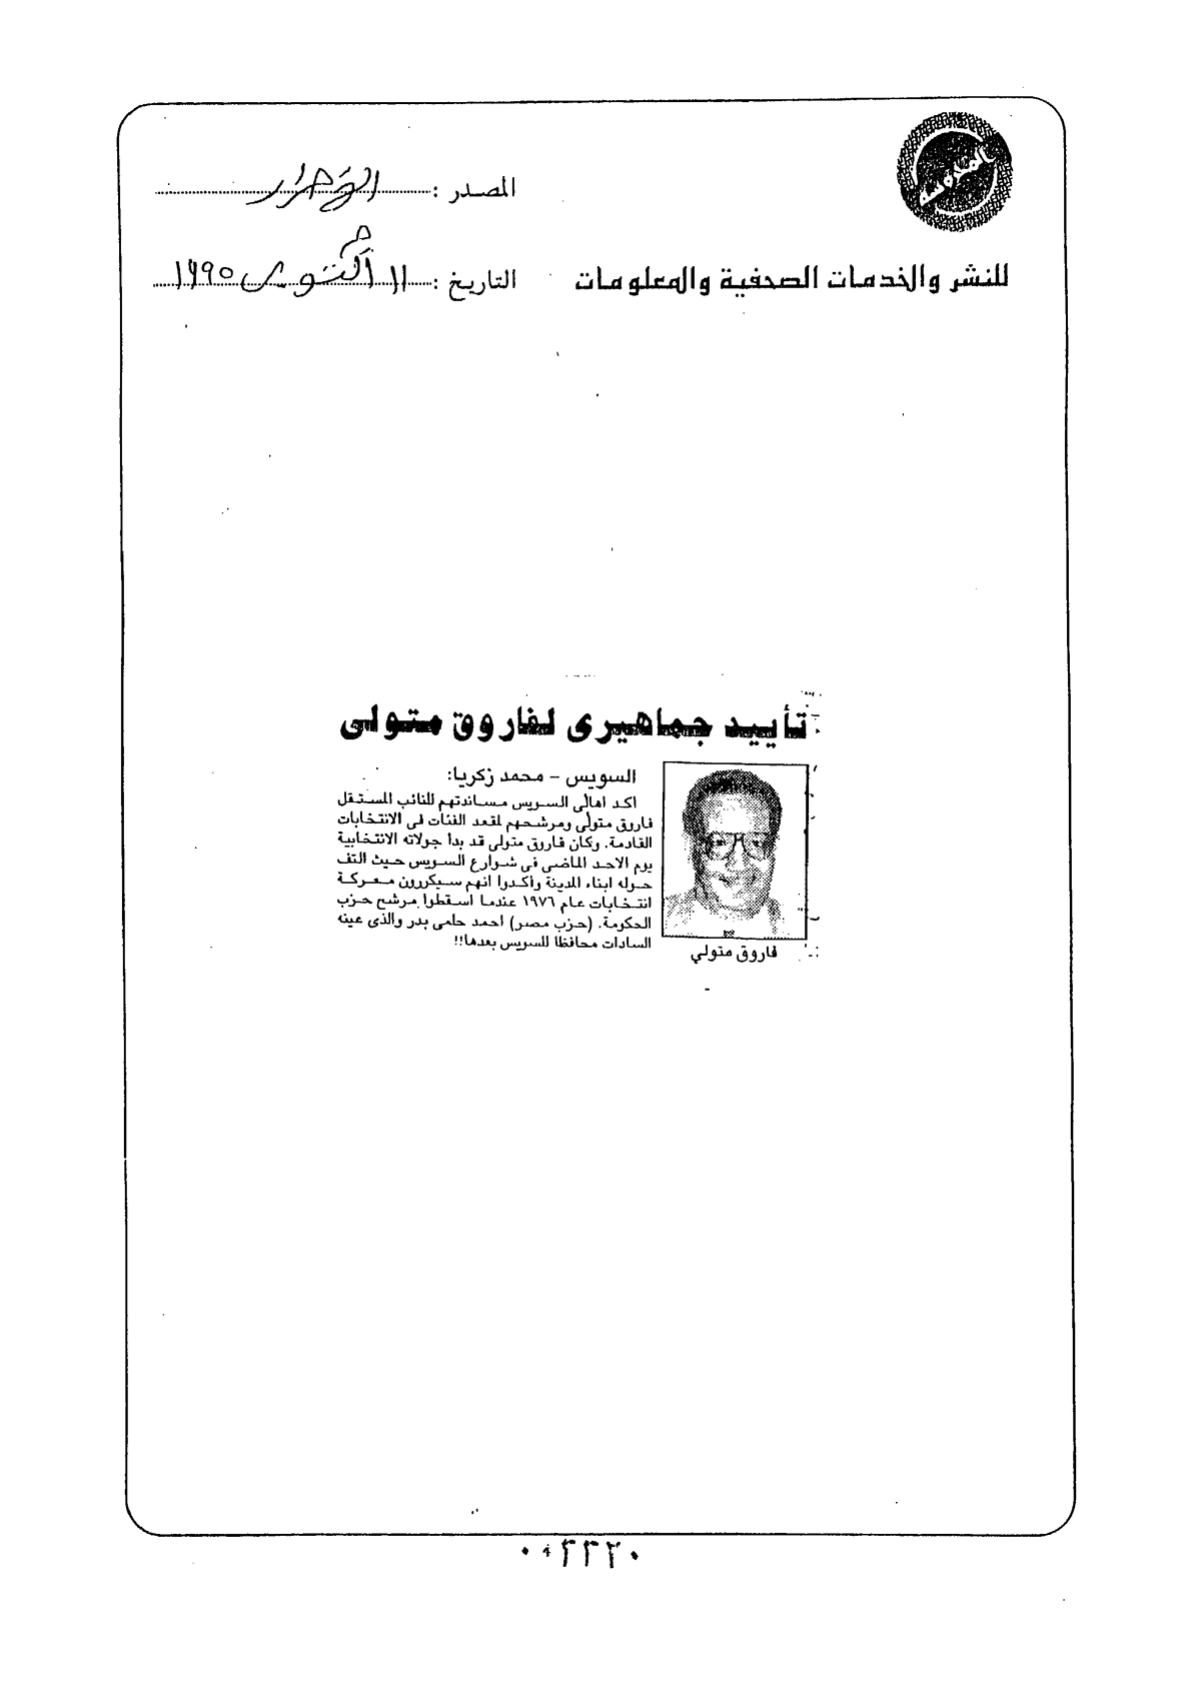 المصدر : الأحرار
للنشر والخدمات الصحفية والمعلومات
التاريخ : ١١ أكتوبر ١٩٩٥
تأييد جماهيرى لفاروق متولى
السويس – محمد زكريا:
اكد اهالى السويس مساندتهم للنائب المستقل
فاروق متولى ومرشحهم لمقعد الفئات فى الانتخابات
القادمة. وكان فاروق متولى قد بدأ جولاته الانتخابية
يوم الاحد الماضى فى شوارع السويس حيث التف
حوله ابناء المدينة وأكدوا انهم سيكررون معركة
انتخابات عام ١٩٧٦ عندما اسقطوا مرشح حزب
الحكومة. (حزب مصر) احمد حلمى بدر والذى عينه
السادات محافظا للسويس بعدها!!
فاروق متولي